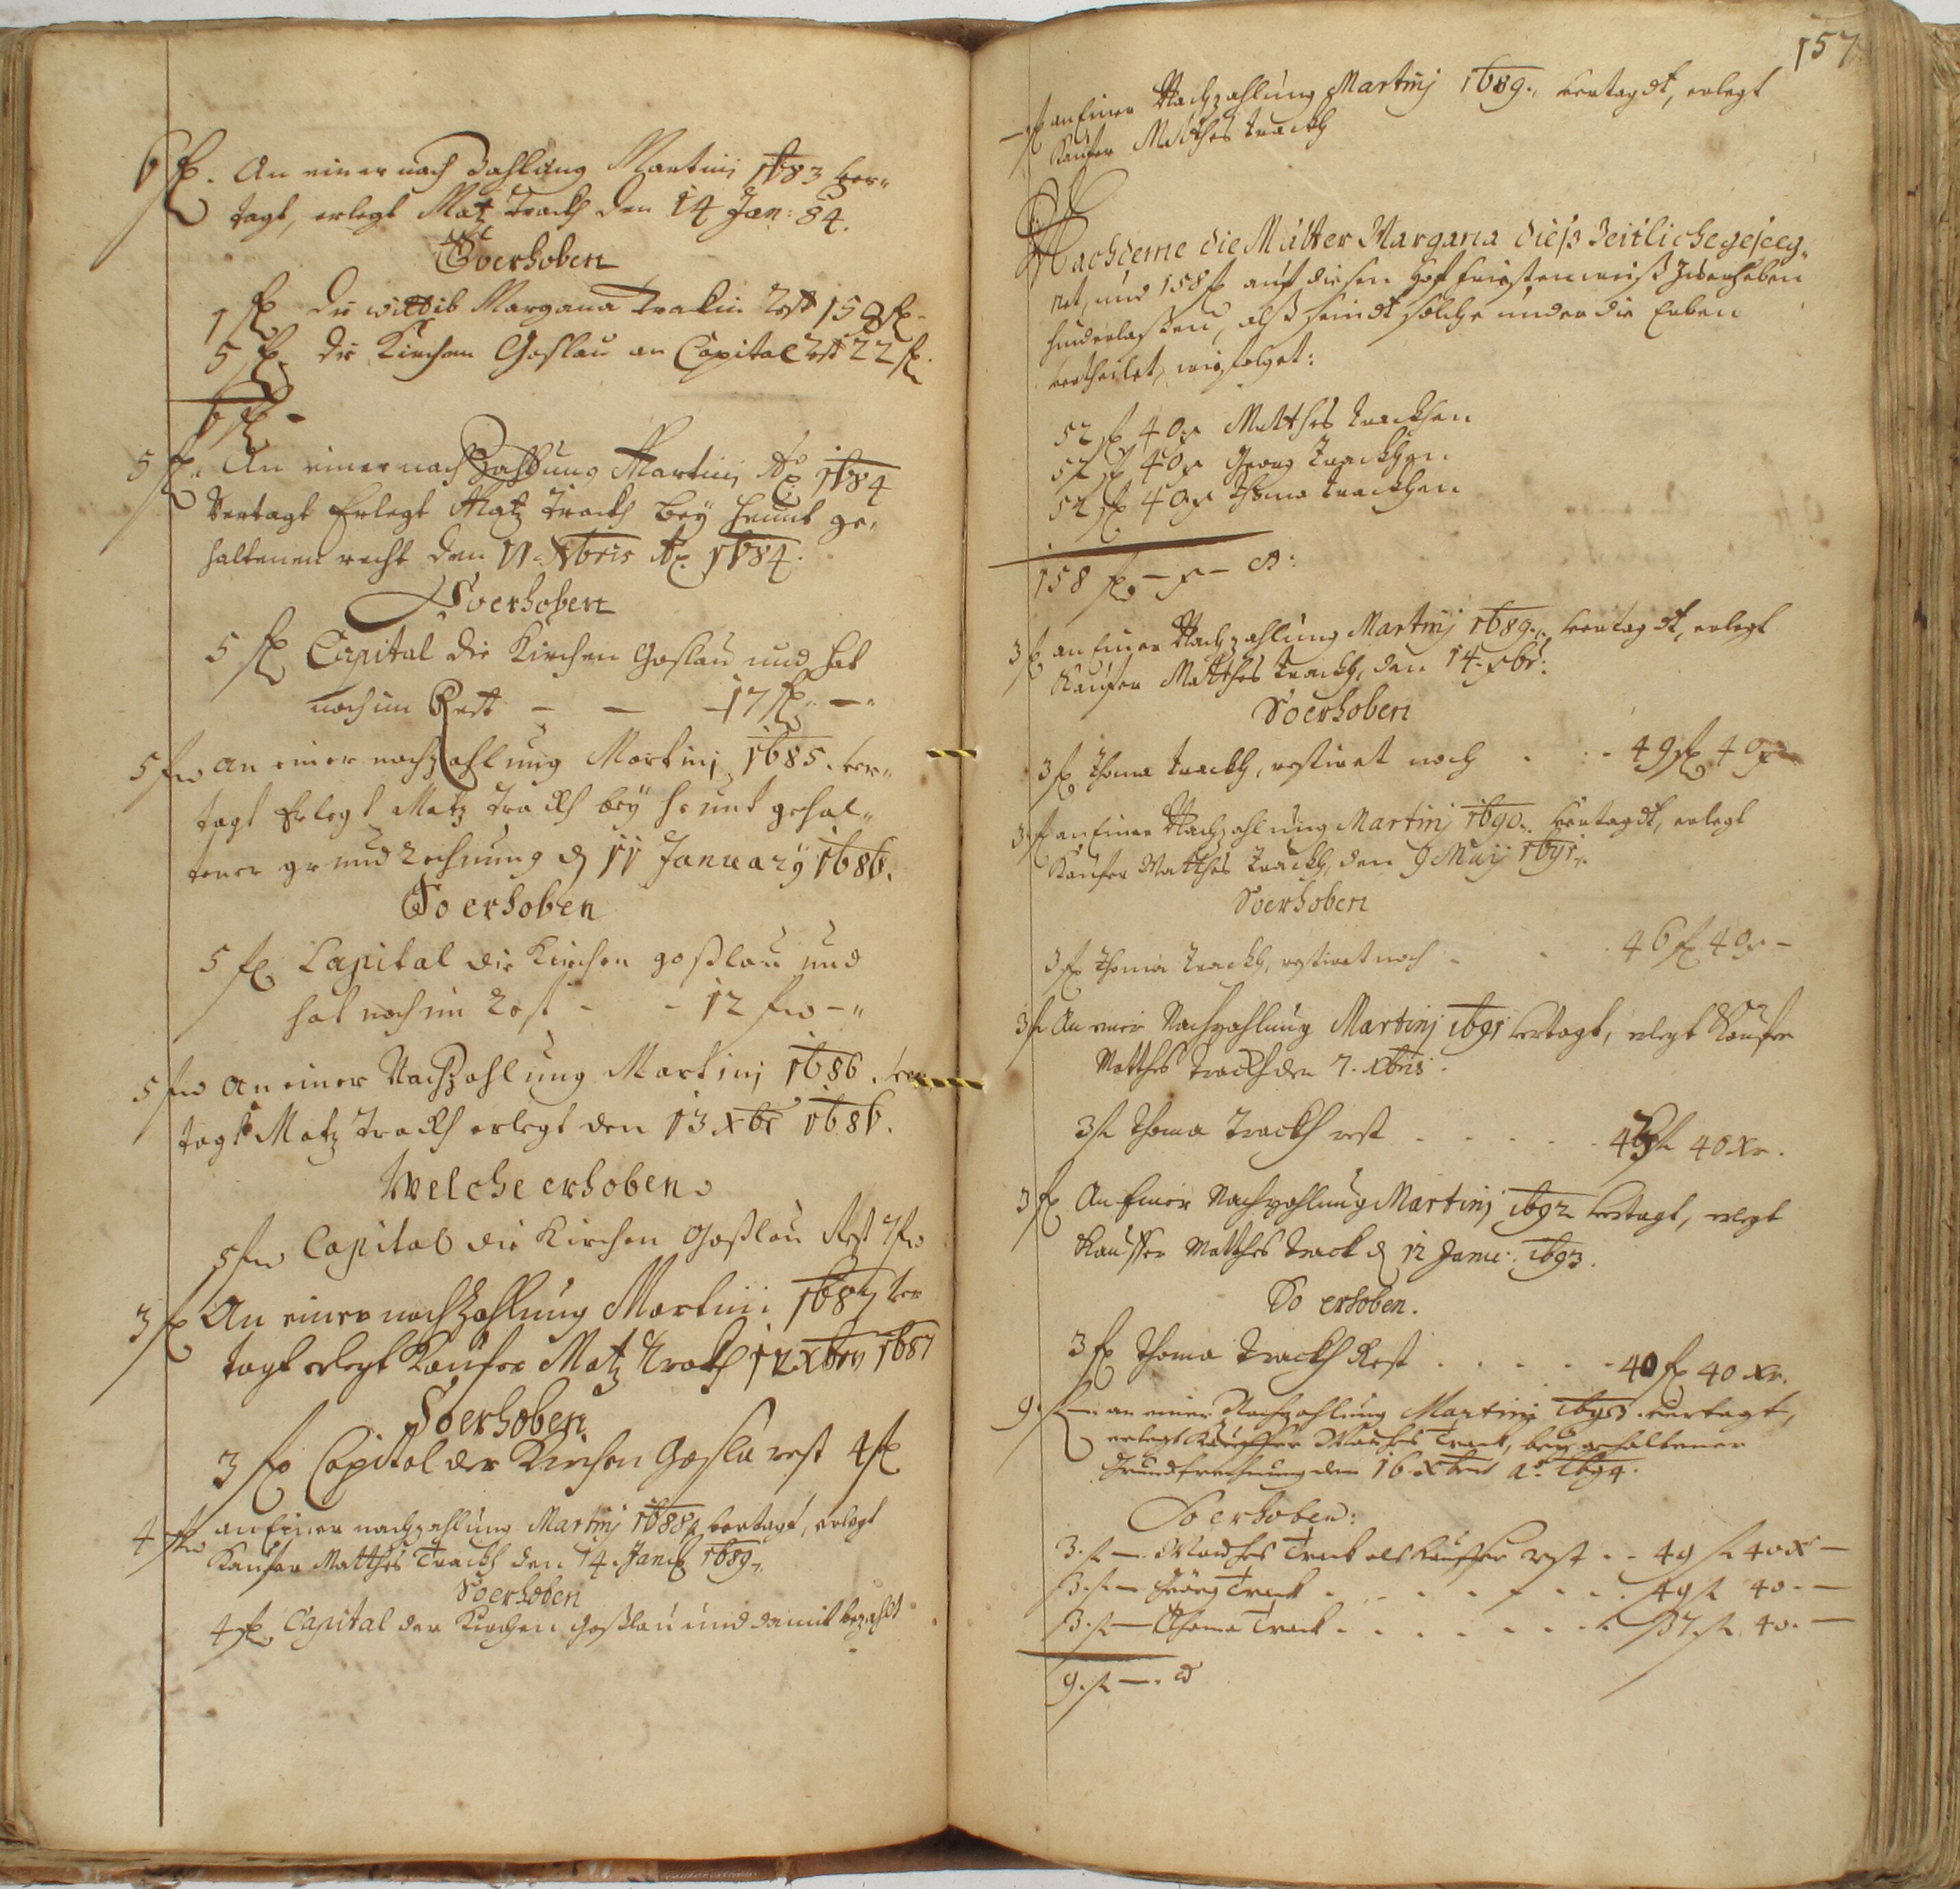 6 fl. An einer nach Zahlung Martini 1683 ver„
tagt, erlegt Matz Trackh den 14 Jan: 84.
So erhoben
1 fl die wittib Margaria Trakin Rest 158 fl.
5 fl. die Kirchen Goslau an Capital Rest 22 fl.
6 fl –
5 fl. An einer nach Zahlung Martini Ao 1684
Vertagt Erlegt Matz Trackh bey heunt ge„
haltenen recht den 11. Xbris Ao. 1684.
So erhoben
5 fl Capital die Kirchen Goslau und hat
noch im Rest – – – 17 fl. –„
5 fl an einer nachzahlung Martinj 1685. ver„
tagt Erlegt Matz Trackh bey heunt gehal„
tener grund Rechnung d 11 January 1686.
So erhoben
5 fl Capital die Kirchen goßlau und
hat noch im Rest – – 12 fl –„
5 fl an einer Nachzahlung Martinj 1686. ver„
tagt Matz Trackh erlegt den 13 Xbr 1686.
Welche erhoben
5 fl Capital die Kirchen Goßlau Rest 7 fl
3 fl An einer nachzahlung Martini 1687 ver
tagt erlegt Kaufer Matz Trakh 12 Xbris 1687
So erhoben
3 fl Capital der Kirchen Gosla rest 4 fl
4 fl an Einer nachzahlung Martinj 1688 vertagt, erlegt
Kaufer Matthes Trackh den 14. Janr 1689.
So erhoben
4 fl. Capital der Kirchen Goßlau und damit bezahlt
157
– fl an Einer Nachzahlung Martinj 1689., vertagdt, erlegt
Kaufer Matthes Trackh
Nachdeme die Mutter Margaria dieß Zeitliche geseeg„
net, und 158 fl auf diesen Hof zuerheben
hinderlaßen, alß seindt solche under die Erben
vertheilet, wie folget:
52 fl 40 x Matthes Trackhen
52 fl 40 x Georg Trackhen
52 fl 40 x Thoma Trackhen
158 fl – x – d:
3 fl an Einer Nachzahlung Martinj 1689., vertagdt, erlegt
Kaufer Matthes Trackh, den 14. xbr:
So erhoben
3 fl Thoma Trackh, restiret noch . . . 49 fl 40 x
3 fl an Einer Nachzahlung Martinj 1690., vertagdt, erlegt
Kaufer Matthes Trackh, den 9 Maij 1691.
So erhoben
3 fl Thoma Trackh, restiret noch – . . 46 fl 40 x –
3 fl An einer Nachzahlung Martinj 1691 vertagt, erlegt Kaufer
Matthes Trackh den 7. Xbris.
3 fl Thoma Trackh rest . . . . . 43 fl 40 xr.
3 fl An Einer Nachzahlung Martinj 1692 vertagt, erlegt
Kauffer Matthes Track d 12 Janu: 1693.
So erhoben.
3 fl Thoma Trackh Rest . . . . . 40 fl 40 xr.
9. fl – an einer Nachzahlung Martinj 1693. vertagt,
erlegt Kauffer Mathes Track, bey gehaltener
Grundtrechnung den 16 Xbris ao 1694.
So erhoben:
3. fl –. Mathes Track als Kauffer rest . . 49 fl 40 x –
3. fl – Georg Track . . . . . . . 49 fl 40. –
3. fl – Thoma Track . . . . . . . 37. fl. 40. –
9. fl –. d